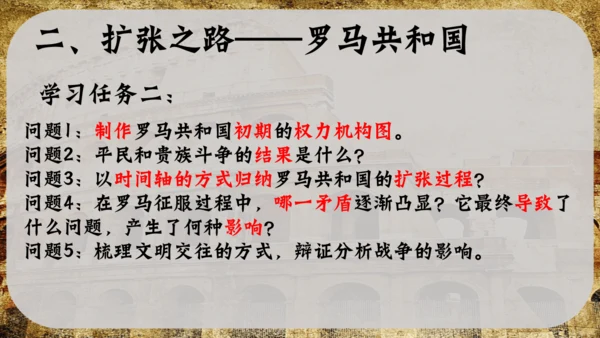 二、扩张之路——罗马共和国
学习任务二：
问题1：制作罗马共和国初期的权力机构图。
问题2：平民和贵族斗争的结果是什么？
问题3：以时间轴的方式归纳罗马共和国的扩张过程？
问题4：在罗马征服过程中，哪一矛盾逐渐凸显？它最终导致了
什么问题，产生了何种影响？
问题5：梳理文明交往的方式，辩证分析战争的影响。